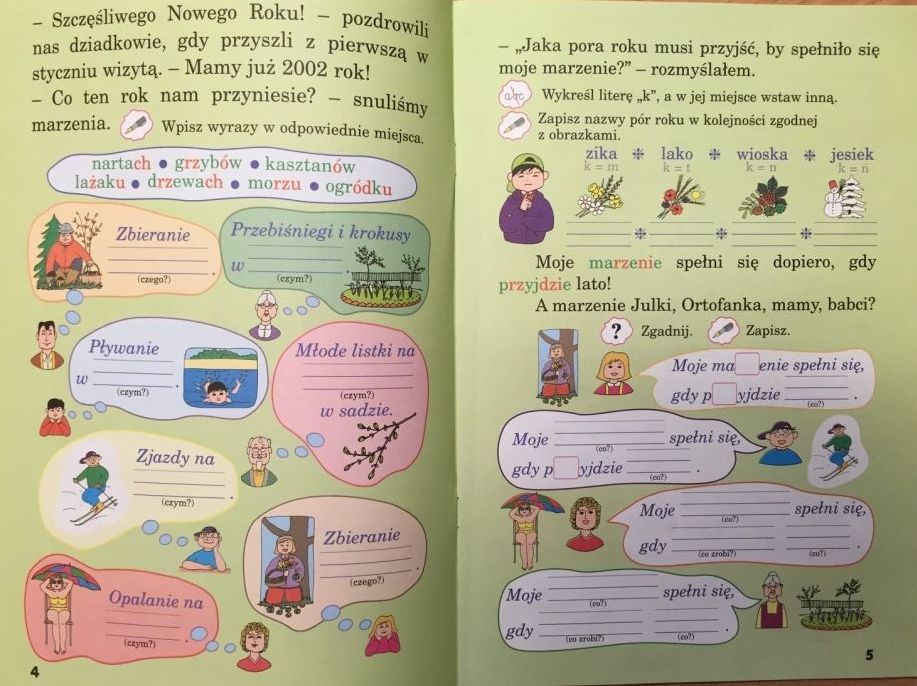 – Szczęśliwego Nowego Roku! – pozdrowili
nas dziadkowie, gdy przyszli z pierwszą w
styczniu wizytą. – Mamy już 2002 rok!
– Co ten rok nam przyniesie? – snuliśmy
marzenia. Wpisz wyrazy w odpowiednie miejsca.
nartach ● grzybów ● kasztanów
lażaku ● drzewach ● morzu ● ogródku
Zbieranie
.
(czego?)
Przebiśniegi i krokusy
w .
(czym?)
Pływanie
w .
(czym?)
Młode listki na
(czym?)
w sadzie.
Zjazdy na
.
(czym?)
Zbieranie
.
(czego?)
Opalanie na
.
(czym?)
4
– „Jaka pora roku musi przyjść, by spełniło się
moje marzenie?” – rozmyślałem.
abc Wykreśl literę „k”, a w jej miejsce wstaw inną.
Zapisz nazwy pór roku w kolejności zgodnej
z obrazkami.
zika lako wioska jesiek
k = m k = t k = n k = ń
Moje marzenie spełni się dopiero, gdy
przyjdzie lato!
A marzenie Julki, Ortofanka, mamy, babci?
? Zgadnij. Zapisz.
Moje ma enie spełni się,
gdy p yjdzie .
(co?)
Moje spełni się,
(co?)
gdy p yjdzie .
(co?)
Moje spełni się,
(co?)
gdy .
(co zrobi?) (co?)
Moje spełni się,
(co?)
gdy .
(co zrobi?) (co?)
5